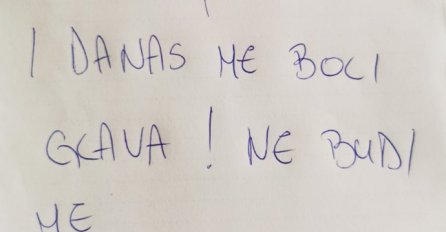 I DANAS ME BOLI
GLAVA! NE BUDI
ME